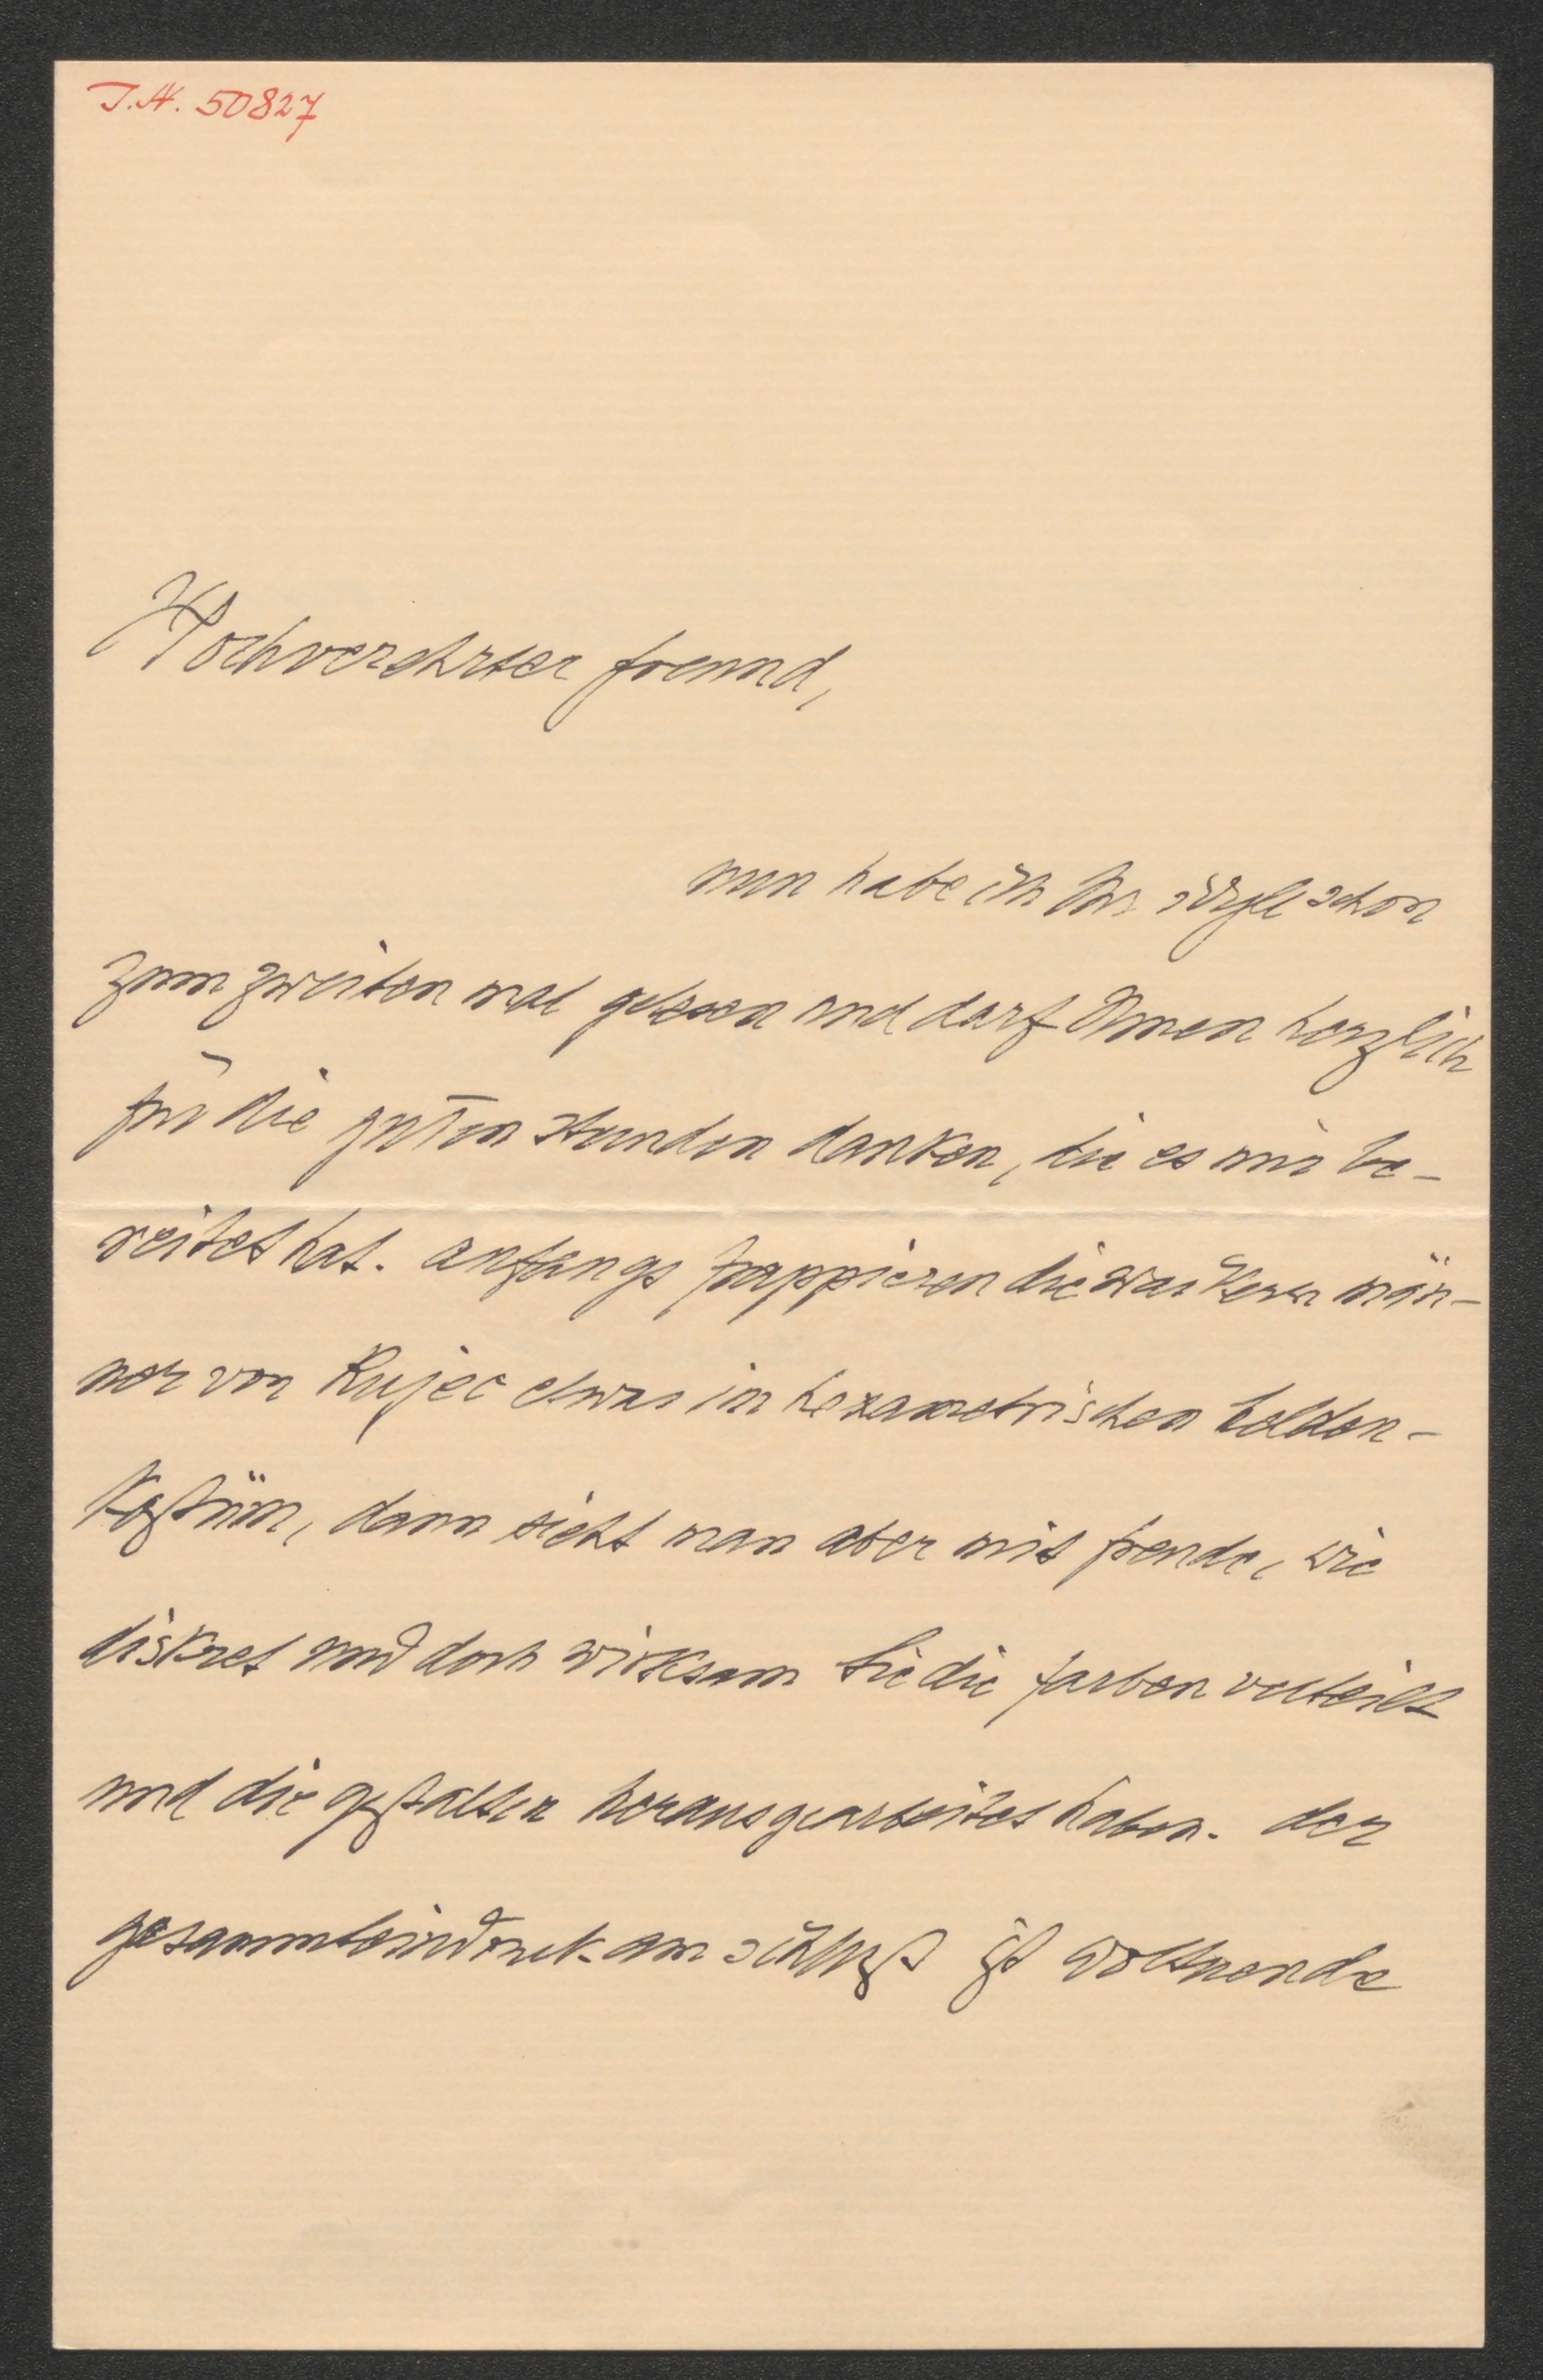 J.N. 50827
Hochverehrter freund,
nun habe ich Ihr schon
zum zweiten mal gelesen und darf Ihnen herzlich
für die guten stunden danken, die es mir be-
reitet hat. anfangs frappieren die wackern män-
ner von Kujec etwas im hexametrischen helden-
kostüm, dann sieht man aber mit freude, wie
diskret und doch wirksam Sie die farben verteilt
und die gestalten herausgearbeitet haben. der
gesammteindruck am schluß ist woltuende